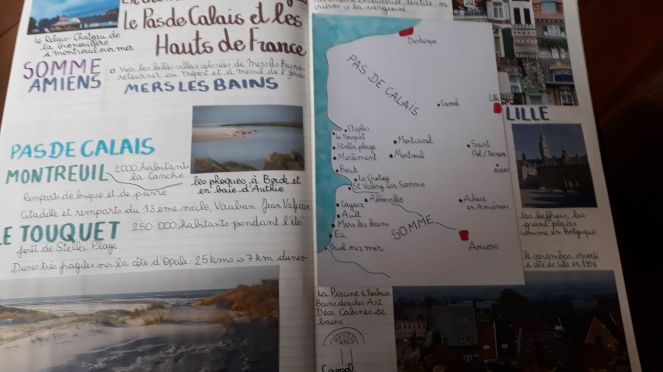 le Pas de Calais et les
Hauts de France
Le Relais-Château de
la Grenouillère
à montreuil sur mer
SOMME
AMIENS
Voir les belles villas colorées de Mers les Bains
retourner au Tréport et à mesnil
MERS LES BAINS
PAS DE CALAIS
MONTREUIL 2000 habitants
la Canche
les phoques à Berck et
en baie d'Authie
Remparts de brique et de pierre
Citadelle et remparts du 13 ème siècle, Vauban Jean Valjean
LE TOUQUET 250 000 habitants pendant l'été
forêt de Stella Plage
Dunes très fragiles sur la côte d'Opale 25 kms → 7 km dunes
Dunkerque
PAS DE CALAIS
Cassel
Lille
LILLE
Etaples
Le Touquet
Stella plage
Merlimont
Berck
Montcavrel
Montreuil
Saint
Pol/Ternoise
Arras
Le Crotoy
St Valery sur Somme
Abbeville
Cayeux
Ault
Mers les bains
Eu
Criel sur mer
SOMME
Amiens
les beffrois, les
grand places
comme en belgique
le carambar inventé
à côté de Lille en 1954
La Piscine à Roubaix
Bains douches Art
Déco. Cabines de
bains
Cassel